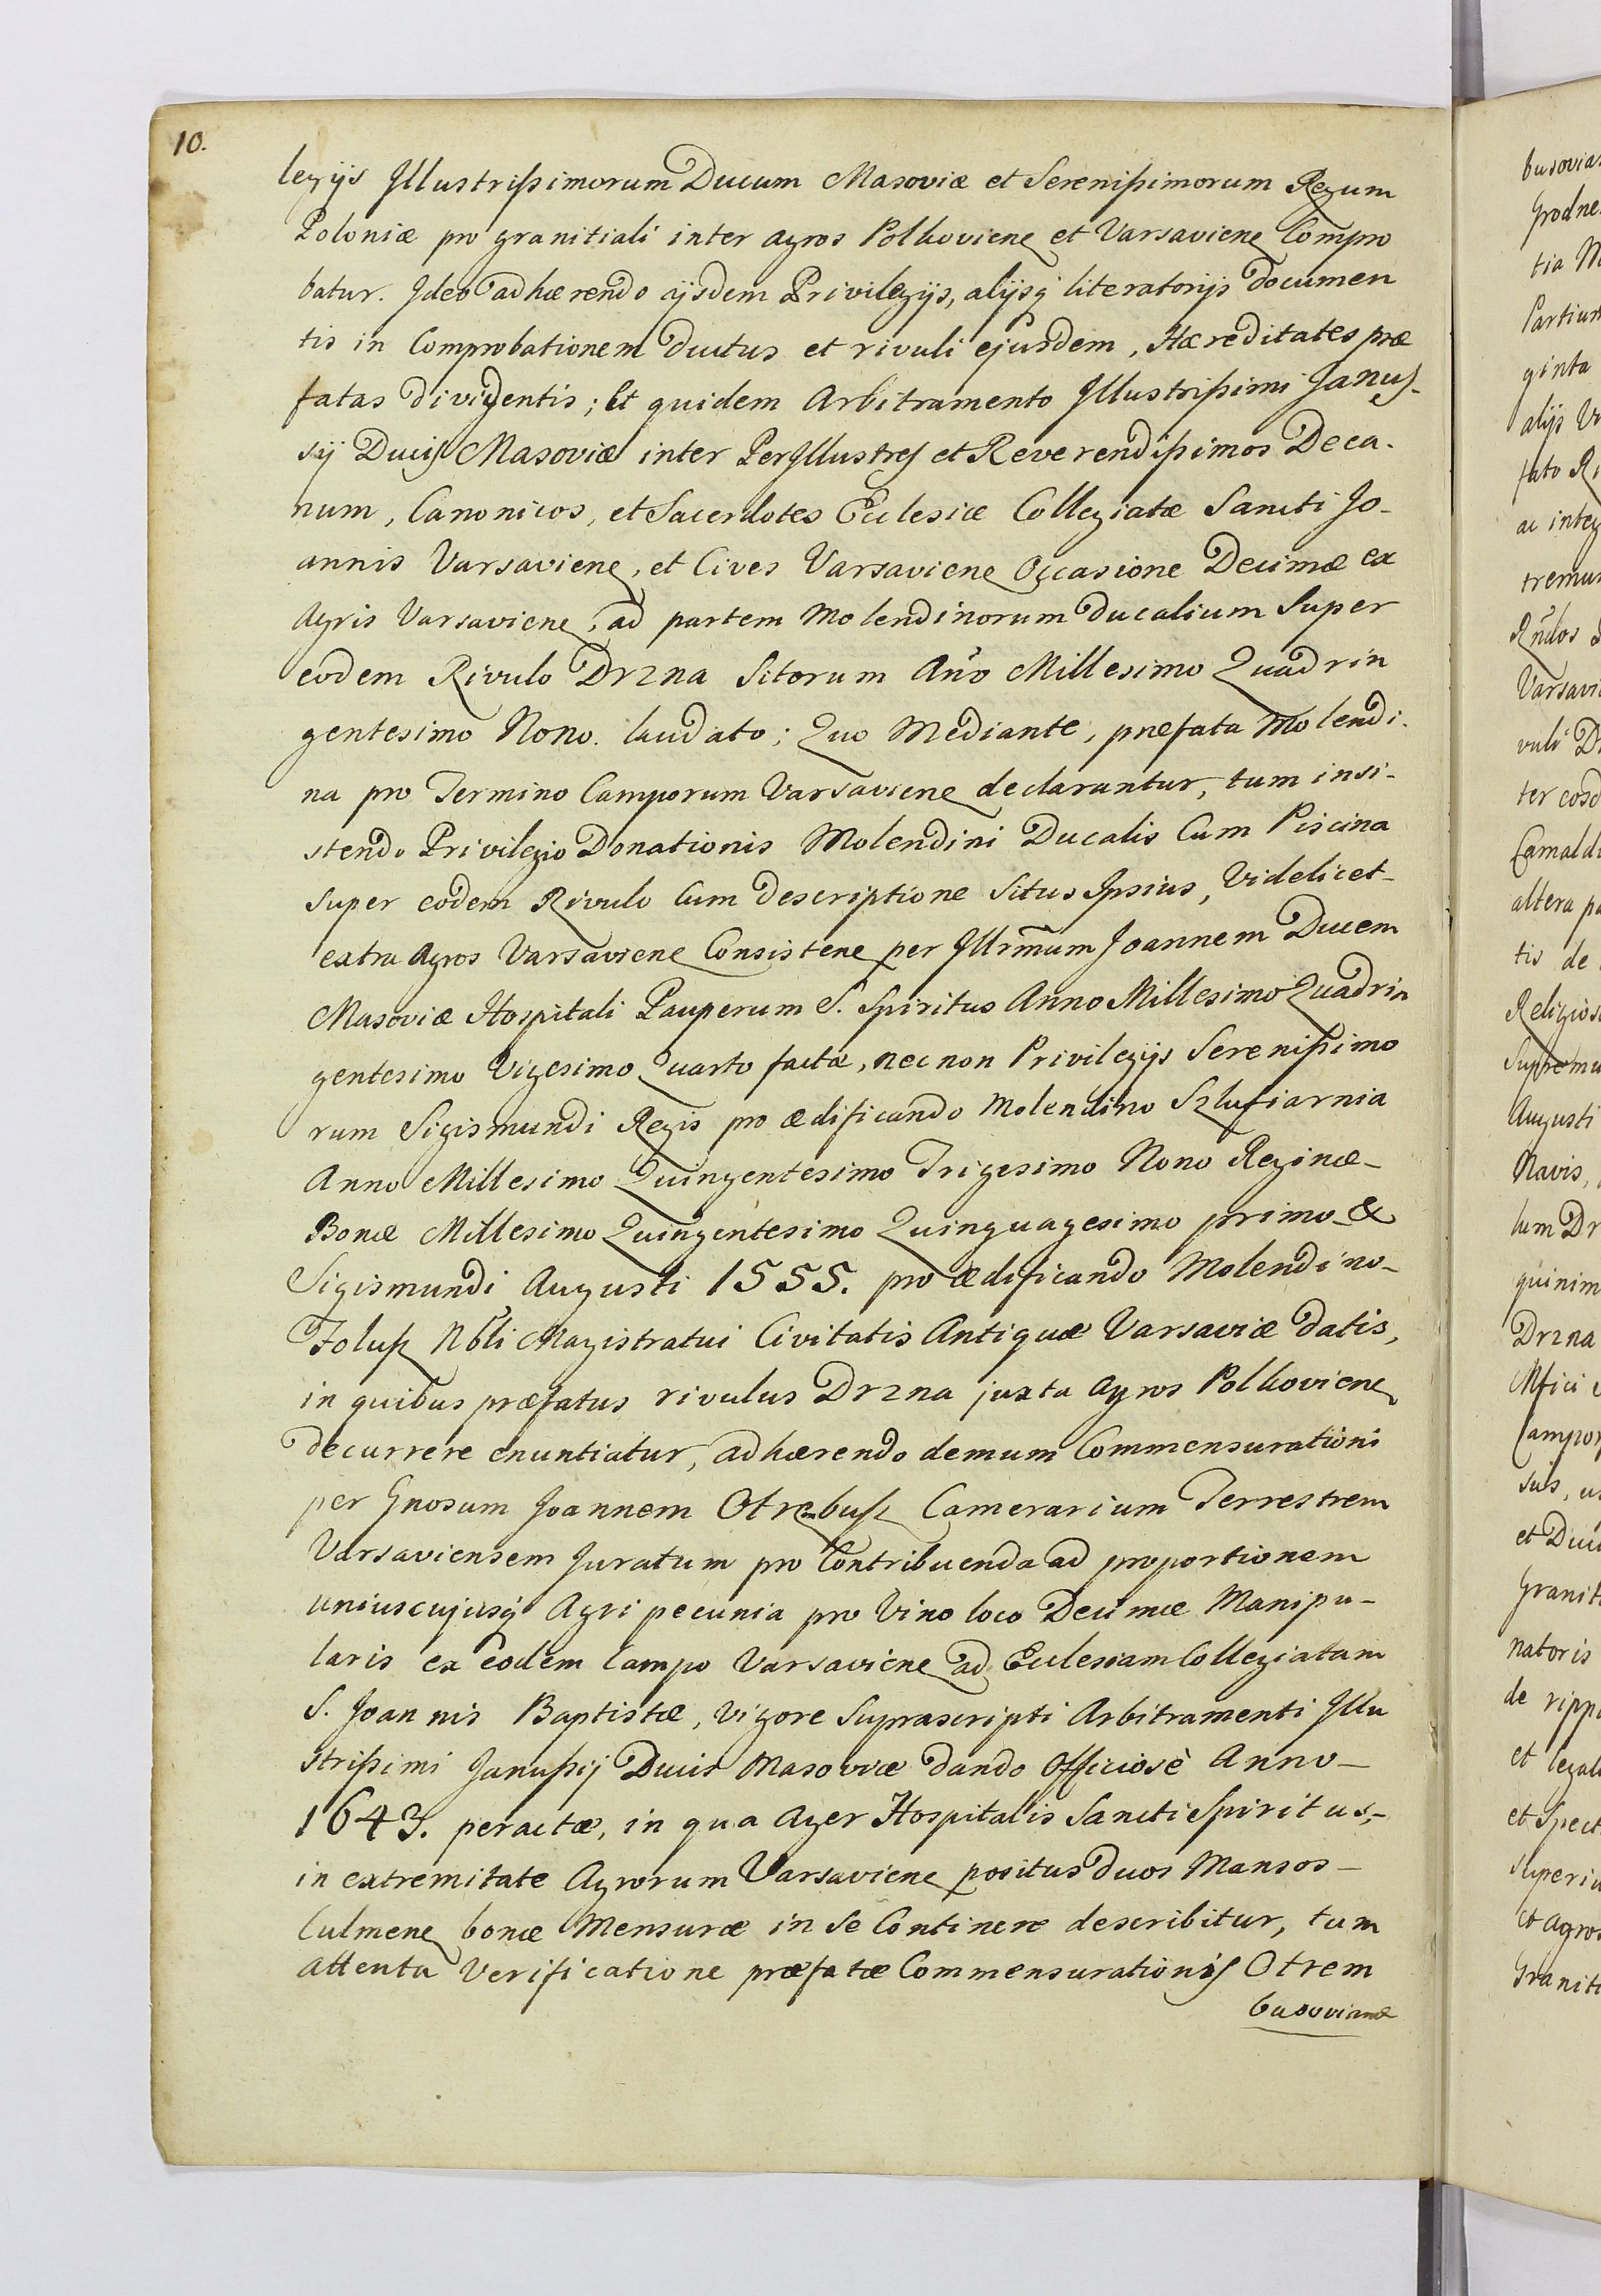 10.
legijs Jllustrißimorum Ducum Masoviæ et Serenißimorum Regum
Poloniæ pro granitiali inter agros Polkoviene et Varsaviene Compro
batur. Jdeo adhærendo ijsdem Privilegijs, alijsq literatorijs documen
tis in Comprobationem ductus et rivuli ejusdem, Hæreditates præ
fatas dividentis; Et quidem Arbitramento Jllustrißimi Janus-
sij Ducis Masoviæ inter PerJllustres et Reverendißimos Deca-
num, Canonicos, et Sacerdotes Eclesiæ Collegiatæ Sancti Jo-
annis Varsaviene, et Cives Varsaviene Occasione Decimæ ex
Agris Varsaviene, ad partem Molendinorum Ducalium Super
eodem Rivulo Drzna Sitorum Año Millesimo Quadrin
gentesimo Nono. laudato; Quo Mediante, præfata Molendi-
na pro Termino Camporum Varsaviene declarantur, tum insi-
stendo Privilegio Donationis Molendini Ducalis Cum Piscina
Super eodem Rivulo Cum descriptione Situs Jpsius, Videlicet-
extra Agros Varsaviene Consistene per Jllrm̃um Joannem Ducem
Masoviæ Hospitali Pauperum S. Spiritus Anno Millesimo Quadrin
gentesimo Vigesimo Quarto factæ, nec non Privilegijs Serenißimo
rum Sigismundi Regis pro ædificando Molendino Szlufiarnia
Anno Millesimo Quingentesimo Trigesimo Nono Reginæ-
Bonæ Millesimo Quingentesimo Quinquagesimo primo &
Sigismundi Augusti 1555. pro ædificando Molendino-
Folusz Nbli Magistratui Civitatis Antiquæ Varsaviæ datis,
in quibus præfatus rivulus Drzna juxta agros Polkoviene
decurrere enuntiatur, adhærendo demum Commensurationi
per Gnosum Joannem Otrembusz Camerarium Terrestrem
Varsaviensem Juratum pro Contribuenda ad proportionem
uniuscujusq Agri pecunia pro Vino loco Decimæ Manipu-
laris ex eodem Campo Varsaviene ad Eclesiam Collegiatam
S. Joannis Baptistæ, Vigore Suprascripti Arbitramenti Jllu
strißimi Janußij Ducis Masoviæ dando Officiosè Anno-
1643. peractæ, in qua Ager Hospitalis Sancti Spiritus,-
in extremitate Agrorum Varsaviene positus duos Mansos-
Culmene bonæ Mensuræ in Se Continere describitur, tum
attenta Verificatione præfatæ Commensurationis Otrem
busovianæ
busovia
Grodne
tia M
Partium
ginta
alijs V
fato R
ac integ
tremu
Rñdos
Varsavi
vuli D
ter eosd
Camald
altera p
tis de
Religios
Supremu
Augusti
Navis,
lum Dr
quinim
Drzna
Mfici
Campor
suis, u
et Duc
Granit
natoris
de ripp
et legal
et Spect
Superiu
et agros
Granit